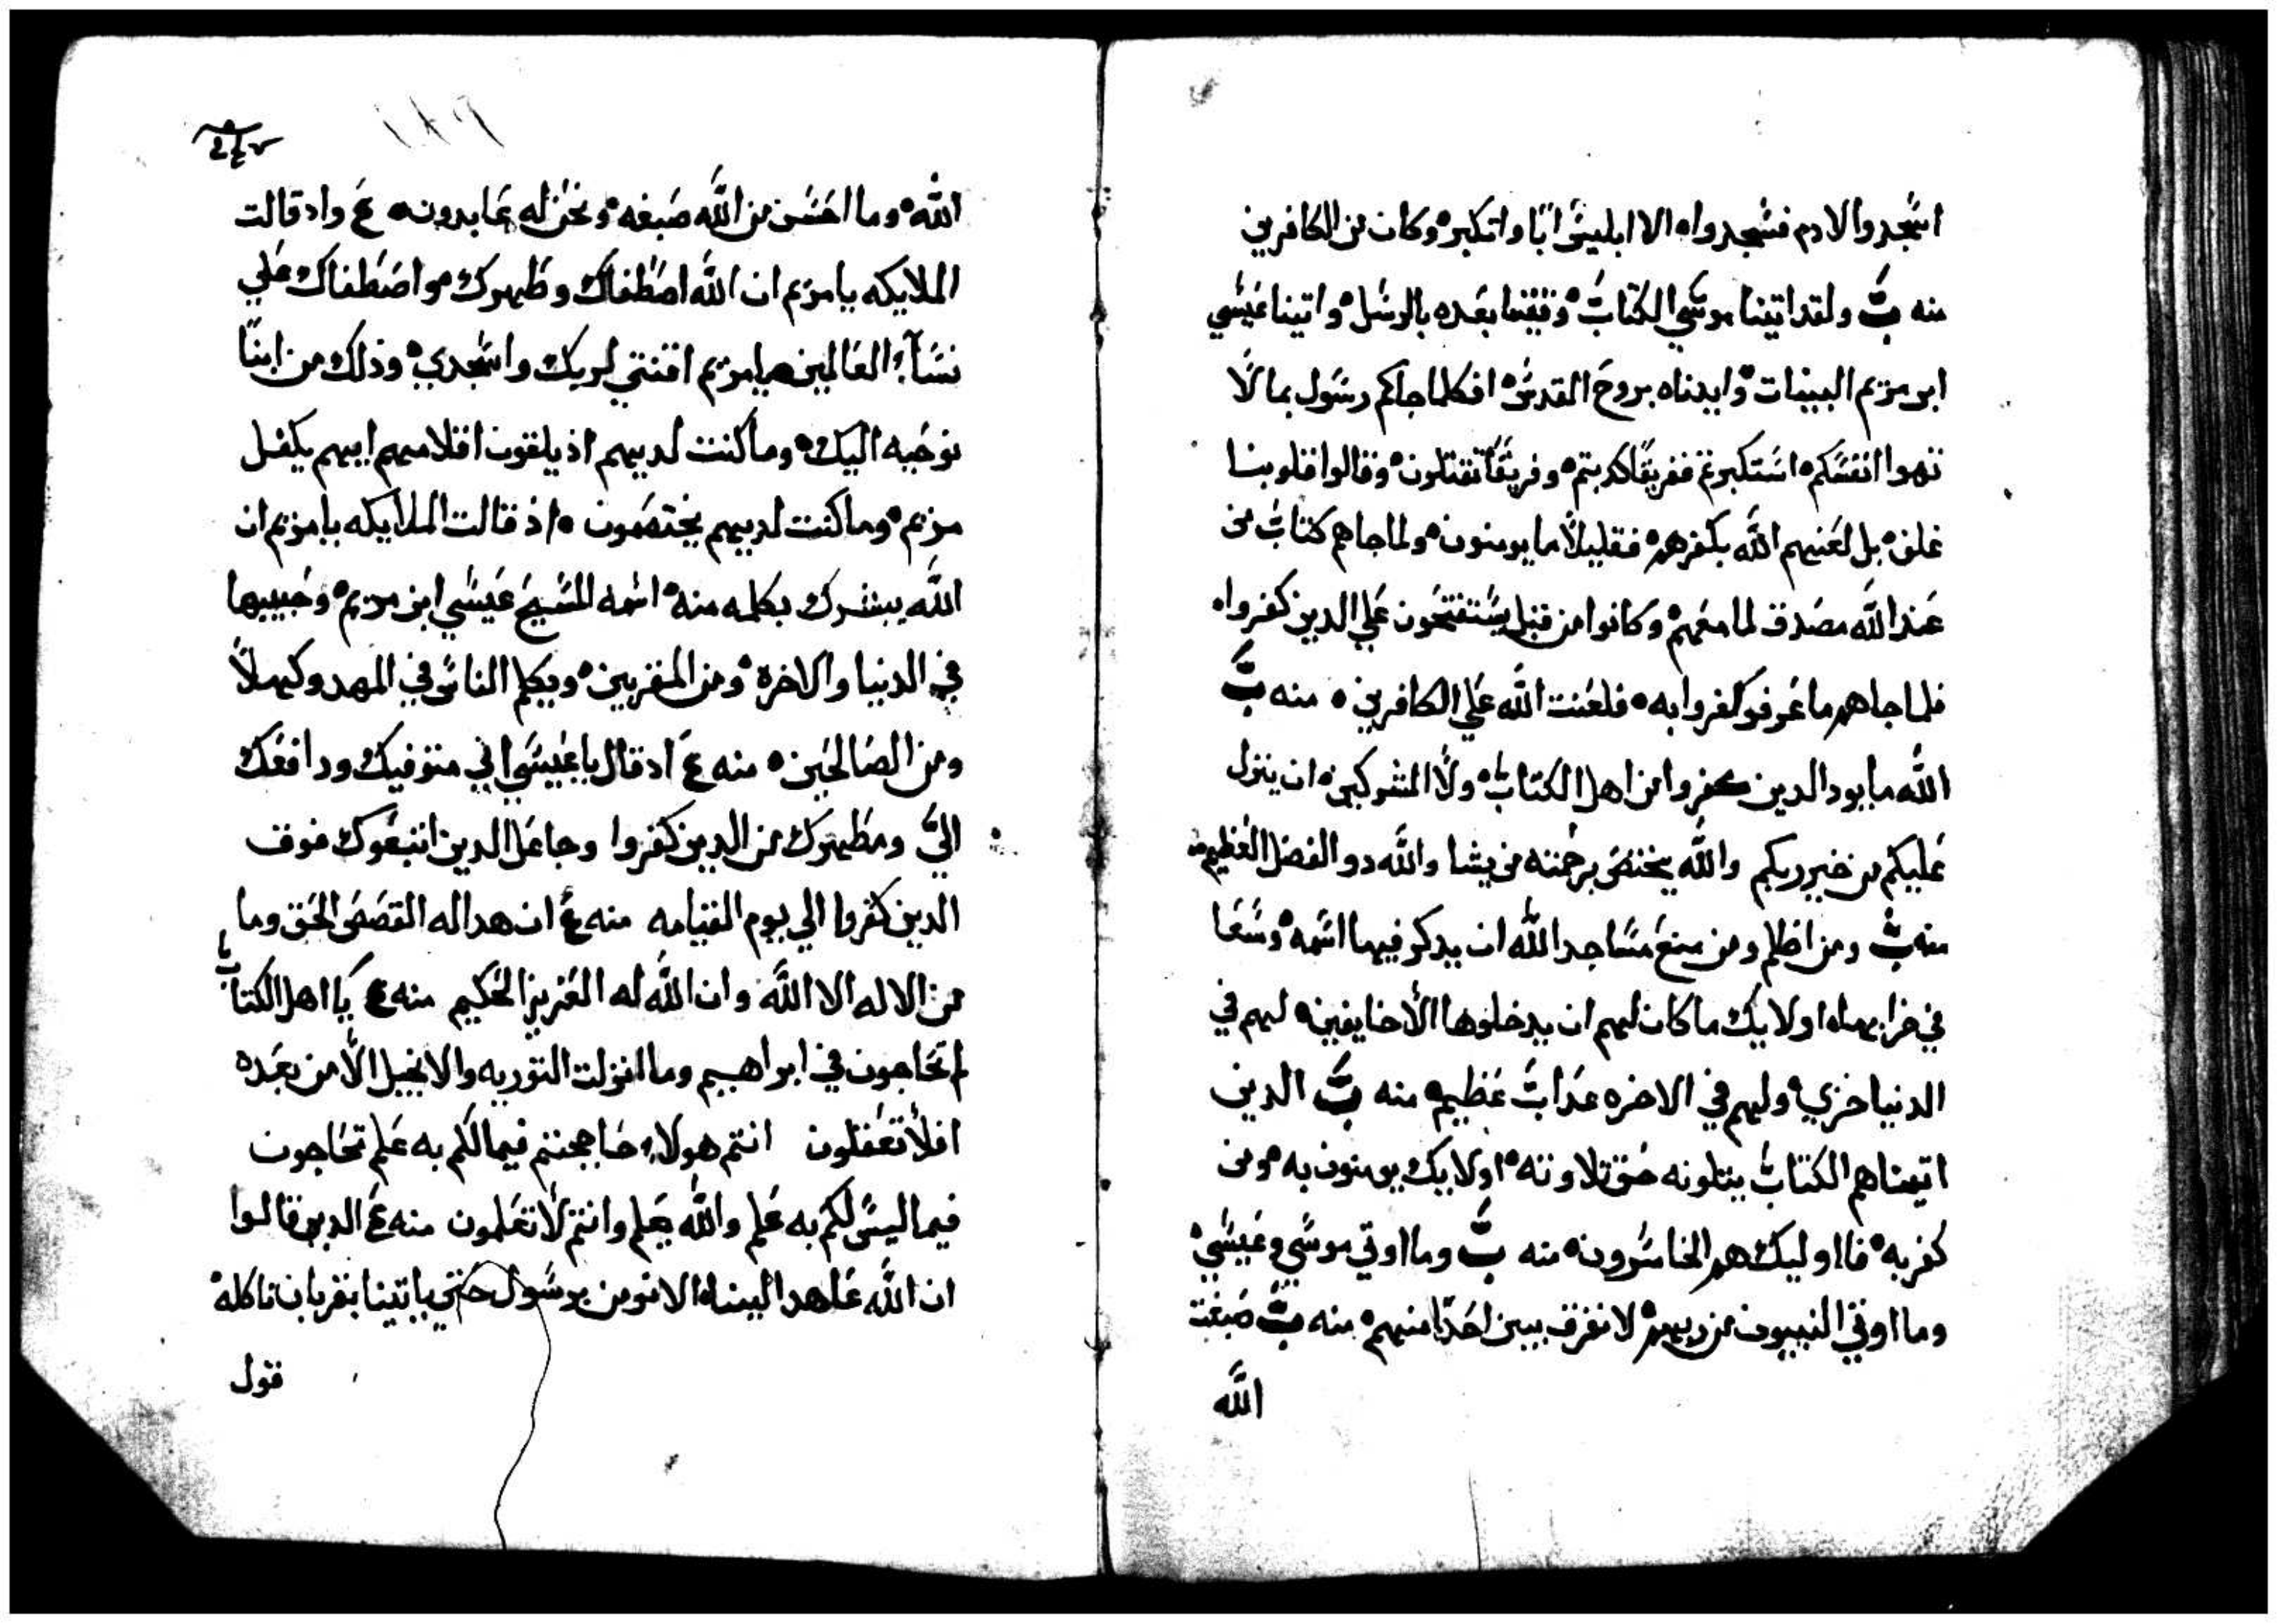 اسجدوا لادم فسجدواه الا ابليس ابا واتكبر ه وكان من الكافرين
منه ب ولقد اتينا موسي الكتاب ه وقفينا بعده بالرسل ه واتينا عيسي
ابن مريم البينات ه وايدناه بروح القدس ه افكلما جاكم رسول بما لا
تهوا انفسكم ه استكبرتم ففريقا كدبتم ه وفريقا تقتلون ه وقالوا قلوبنا
غلف ه بل لعنهم الله بكفرهم ه فقليلا ما يومنون ه ولما جاهم كتاب من
عند الله مصدق لما معهم ه وكانوا من قبل يستفتحون علي الدين كفروا ه
فلما جاهم ما عرفو كفروا به ه فلعنت الله علي الكافرين ه منه ب
الله ما يود الدين كفروا من اهل الكتاب ه ولا المشركين ه ان ينزل
عليكم من خير ربكم والله يختص برحمته من يشا والله دو الفضل العظيم
منه ب ومن اظلم ومن منع مساجد الله ان يدكر فيها اسمه ه وسعا
في خرابها ه اولايك ما كان لهم ان يدخلوها الا خايفين ه لهم في
الدنيا خزي ه ولهم في الاخره عداب عظيم ه منه ب الدين
اتيناهم الكتاب يتلونه حق تلاوته ه اولايك يومنون به ه ومن
كفر به ه فااوليك هم الخاسرون ه منه ب وما اوتي موسي وعيسي ه
وما اوتي النبيون من ربهم ه لا نفرق بين احدا منهم ه منه ب صبغت
الله
الله ه وما احسن من الله صبغه ه ونحن له عابدون ه ع واد قالت
الملايكه يا مريم ان الله اصطفاك وطهرك ه واصطفاك علي
نسآء العالمين ه يا مريم اقنتي لربك واسجدي ه وذلك من ابنا
نوحيه اليك ه وما كنت لديهم اذ يلقون اقلامهم ايهم يكفل
مريم ه وما كنت لديهم يختصمون ه اذ قالت الملايكه يا مريم ان
الله يبشرك بكلمه منه ه اسمه المسيح عيسي ابن مريم ه وجيبها
في الدنيا والاخرة ه ومن المقربين ه ويكلم الناس في المهد وكهلا
ومن الصالحين ه منه ع اد قال يا عيسي اني متوفيك ورافعك
الي ومطهرك من الدين كفروا وجاعل الدين اتبعوك فوق
الدين كفروا الي يوم القيامه منه ع ان هدا له القصص الحق وما
من الاله الا الله وان الله له العزيز الحكيم منه ع يا اهل الكتاب
لم تحاجون في ابراهيم وما انزلت التوريه والانجيل الا من بعده
افلا تعقلون انتم هولاء حاججتم فيما لكم به علم تحاجون
فيما ليس لكم به علم والله يعلم وانتم لا تعلمون منه ع الدين قالوا
ان الله عاهد الينا ه الا نومن برسول حتي ياتينا بقربان تاكله ه
قول